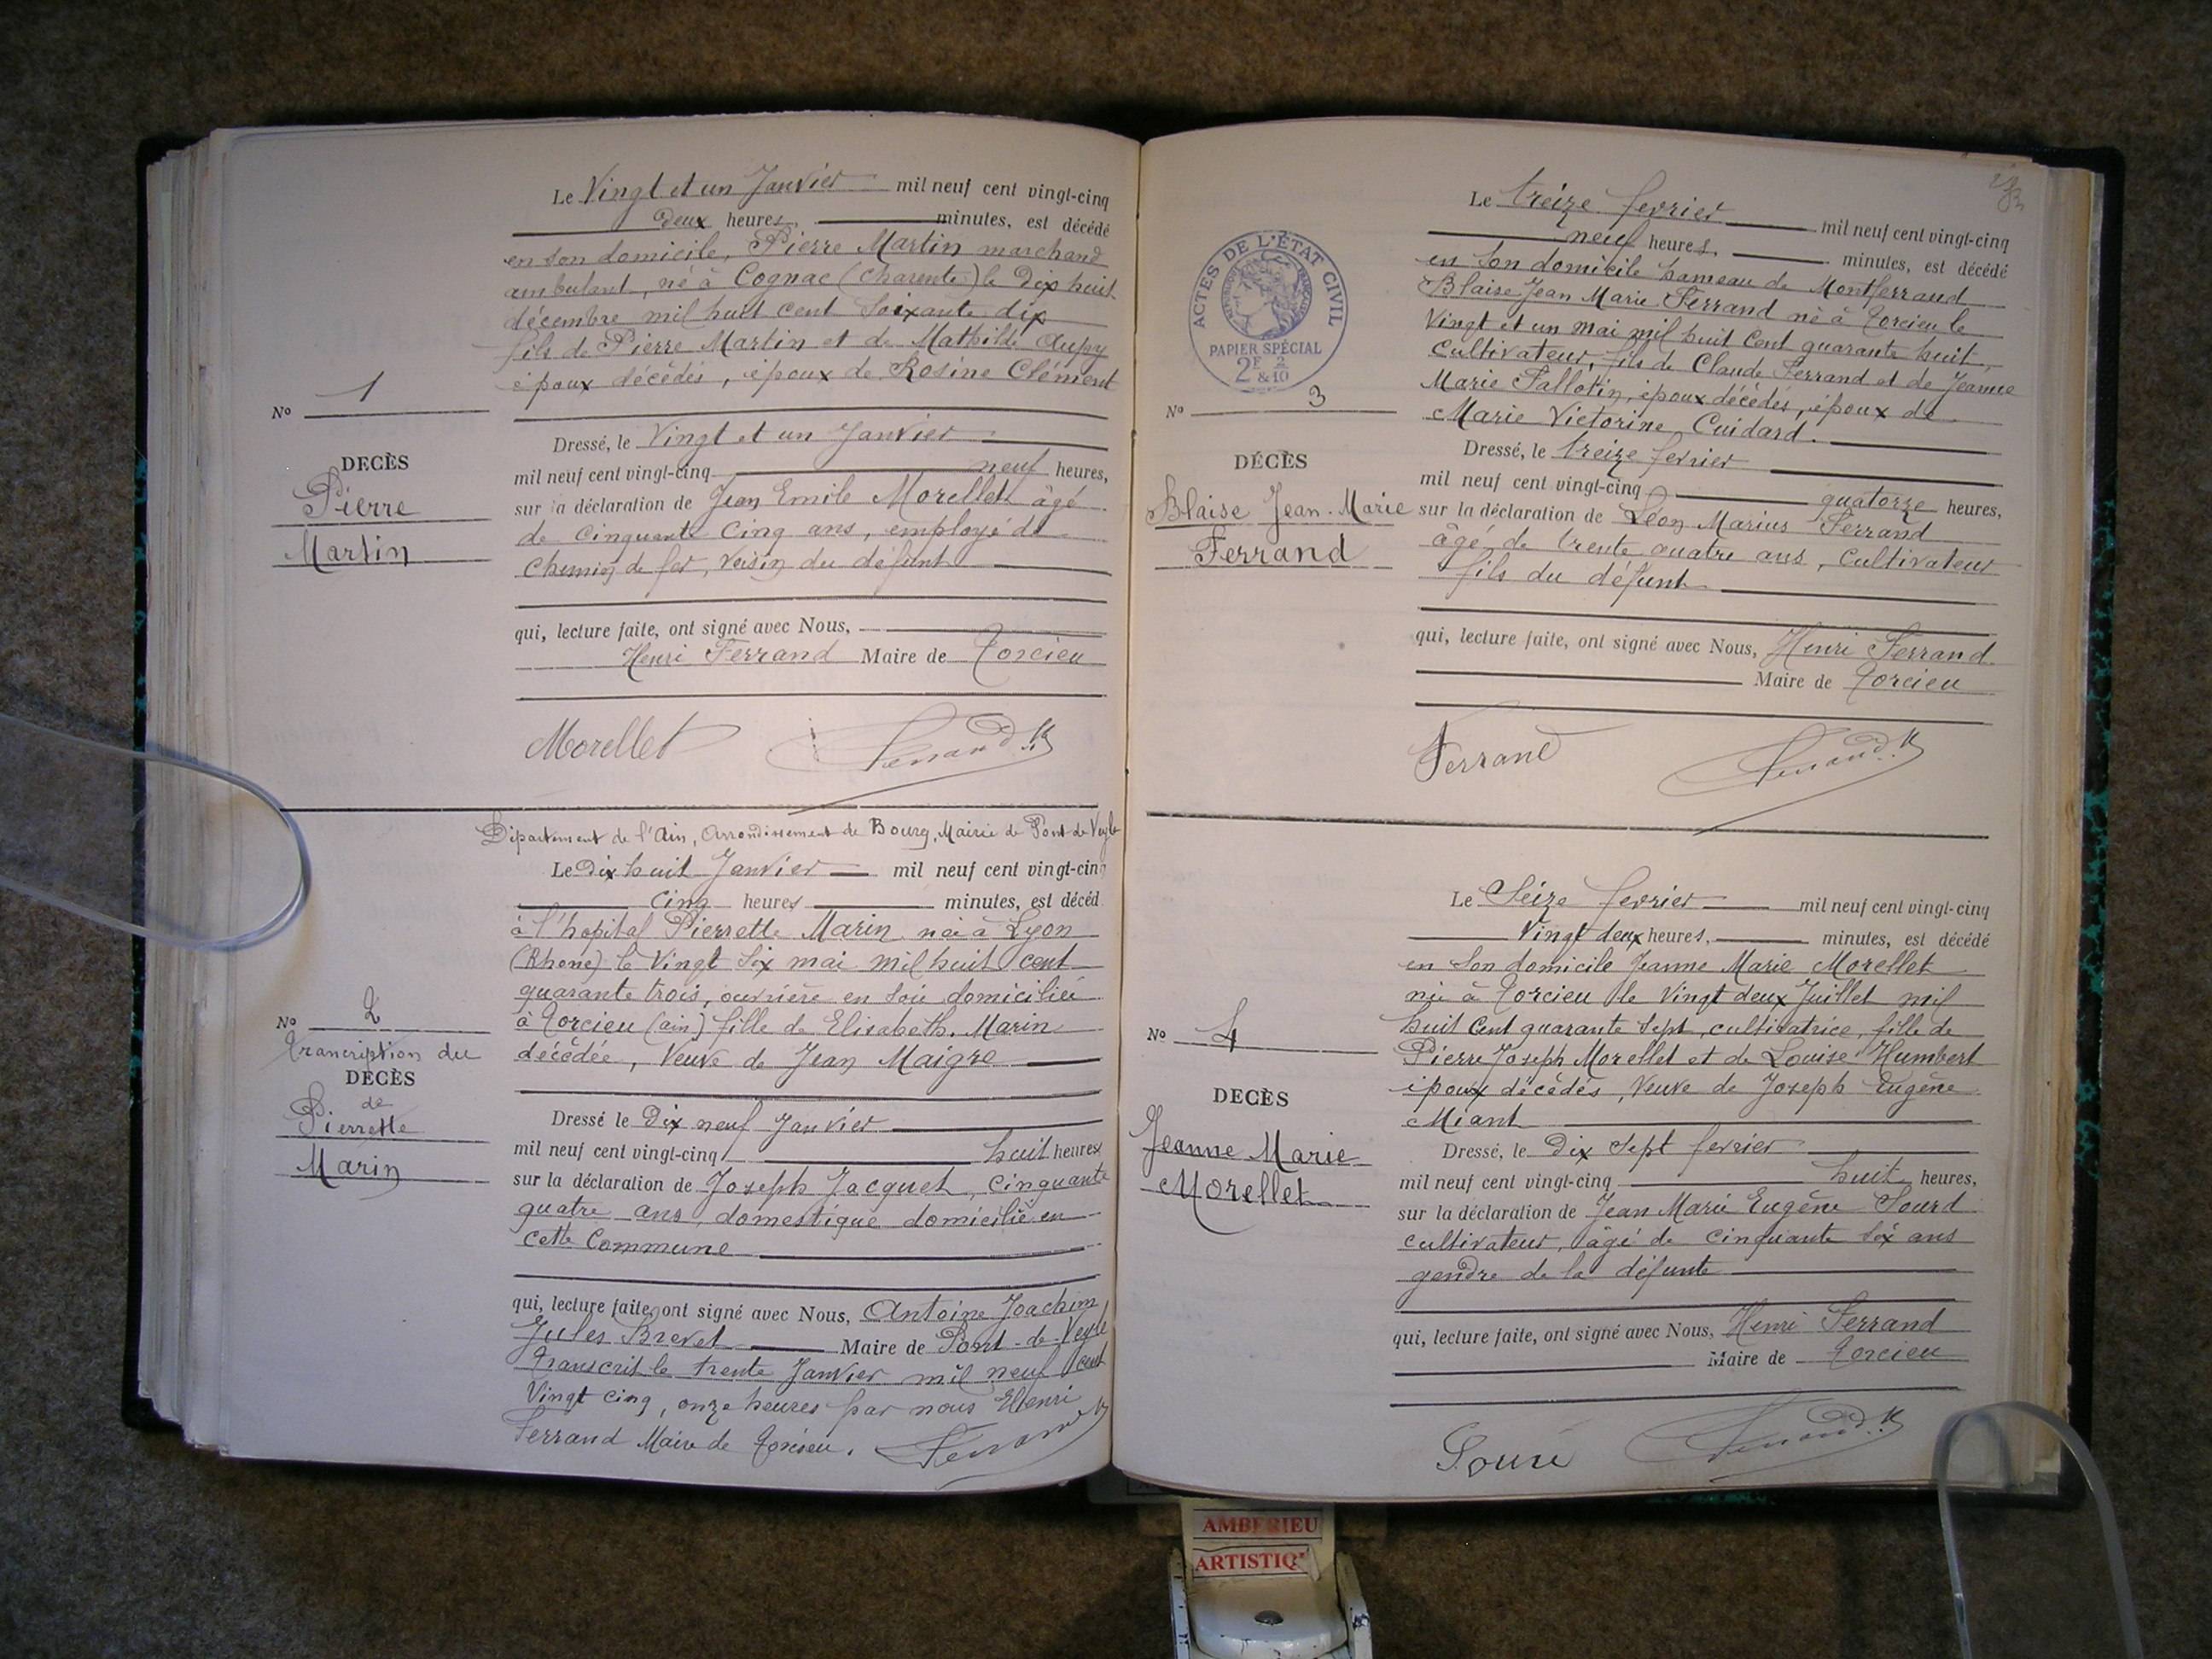 Le Vingt et un Janvier mil neuf cent vingt-cinq
deux heures, minutes, est décédé
en son domicile, Pierre Martin marchand
ambulant, né à Cognac (Charente) le Dix huit
décembre mil huit cent Soixante dix
fils de Pierre Martin et de Mathilde Aupy
époux décédés, époux de Rosine Clément
No 1
DÉCÈS
Pierre
Martin
Dressé, le Vingt et un Janvier
mil neuf cent vingt-cinq neuf heures,
sur la déclaration de Jean Emile Morellet âgé
de Cinquante Cinq ans, employé de
Chemin de fer, Voisin du défunt
qui, lecture faite, ont signé avec Nous,
Henri Ferrand Maire de Torcieu
Morellet Ferrand
Département de l'Ain, Arrondissement de Bourg, Mairie de Pont de Veyle
Le Dix huit Janvier mil neuf cent vingt-cinq
Cinq heures minutes, est décéd
à l'hopital Pierrette Marin née à Lyon
(Rhone) le Vingt Six mai mil huit cent
quarante trois, ouvrière en Soie domiciliée
à Torcieu (ain) fille de Elisabeth Marin
décédée, Veuve de Jean Maigre
No 2
Trancription du
DÉCÈS
de
Pierrette
Marin
Dressé le Dix neuf Janvier
mil neuf cent vingt-cinq huit heures
sur la déclaration de Joseph Jacquet, Cinquante
quatre ans, domestique domicilié en
cette Commune
qui, lecture faite, ont signé avec Nous, Antoine Joachim
Jules Brevet Maire de Pont-de-Veyle
Transcrit le trente Janvier mil neuf cent
Vingt cinq, onze heures par nous Henri
Ferrand Maire de Torcieu. Ferrand
Le treize fevrier mil neuf cent vingt-cinq
neuf heures minutes, est décédé
en Son domicile hameau de Montferrand
Blaise Jean Marie Ferrand né à Torcieu le
Vingt et un mai mil huit Cent quarante huit,
Cultivateur, fils de Claude Ferrand et de Jeanne
Marie Fallotin, époux décédés, époux de
Marie Victorine Cuidard.
ACTES DE L'ÉTAT CIVIL
RÉPUBLIQUE FRANÇAISE
PAPIER SPÉCIAL
2F & 2/10
No 3
DÉCÈS
Blaise Jean-Marie
Ferrand
Dressé, le treize fevrier
mil neuf cent vingt-cinq quatorze heures,
sur la déclaration de Léon Marius Ferrand
âgé de trente quatre ans, Cultivateur
fils du défunt
qui, lecture faite, ont signé avec Nous, Henri Ferrand
Maire de Torcieu
Ferrand Ferrand
Le Seize fevrier mil neuf cent vingt-cinq
Vingt deux heures, minutes, est décédé
en Son domicile Jeanne Marie Morellet
née à Torcieu le Vingt deux Juillet mil
huit Cent quarante Sept, cultivatrice, fille de
Pierre Joseph Morellet et de Louise Humbert
époux décédés, Veuve de Joseph Eugène
Miant
No 4
DÉCÈS
Jeanne Marie
Morellet
Dressé, le Dix Sept fevrier
mil neuf cent vingt-cinq huit heures,
sur la déclaration de Jean Marie Eugène Sourd
cultivateur, âgé de cinquante Six ans
gendre de la défunte
qui, lecture faite, ont signé avec Nous, Henri Ferrand
Maire de Torcieu
Sourd Ferrand
AMBERIEU
ARTISTIQ